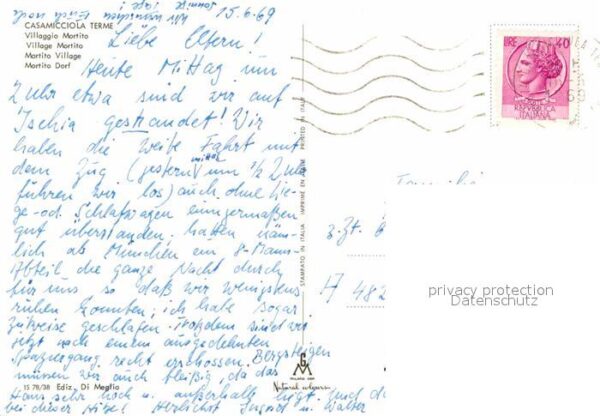 15.6.69
CASAMICCIOLA TERME
Villaggio Mortito
Village Mortito
Mortito Village
Mortito Dorf
Liebe Eltern!
Heute Mittag um
2 Uhr etwa sind wir auf
Ischia gestrandet! Wir
haben die weite Fahrt mit
dem Zug (gestern mittag um ½ 2 Uhr
führen wir los) auch ohne Lie-
ge- od. Schlafwagen einigermaßen
gut überstanden, hatten näm-
lich ab München ein 8-Mann-
Abteil die ganze Nacht durch
für uns so daß wir wenigstens
ruhen konnten; ich habe sogar
zeitweise geschlafen. Trotzdem sind wir
jetzt nach einem ausgedehnten
Spaziergang recht erschossen. Bergsteigen
müssen wir auch fleißig, da das
Haus sehr hoch u. außerhalb liegt. Und d
bei dieser Hitze! Herzlichst Ingrid u. Walter
IS 78/38 Ediz. Di Meglio
STAMPATO IN ITALIA IMPRIMÉ EN ITALIE PRINTED IN ITALY
MILANO
Natural colours
LIRE 40
REPUBBLICA
ITALIANA
Familie
z.Zt.
A 482
privacy protection
Datenschutz